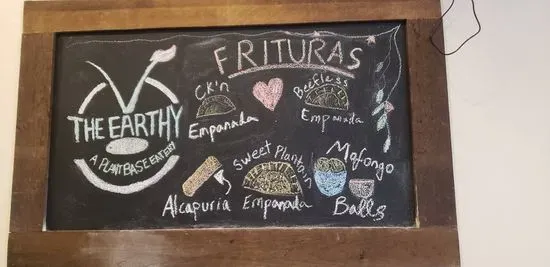 FRITURAS
THE EARTHY
A PLANT BASE EATERY
Ck'n
Empanada
Beefless
Empanada
Alcapuria
Sweet Plantain
Empanada
Mofongo
Balls